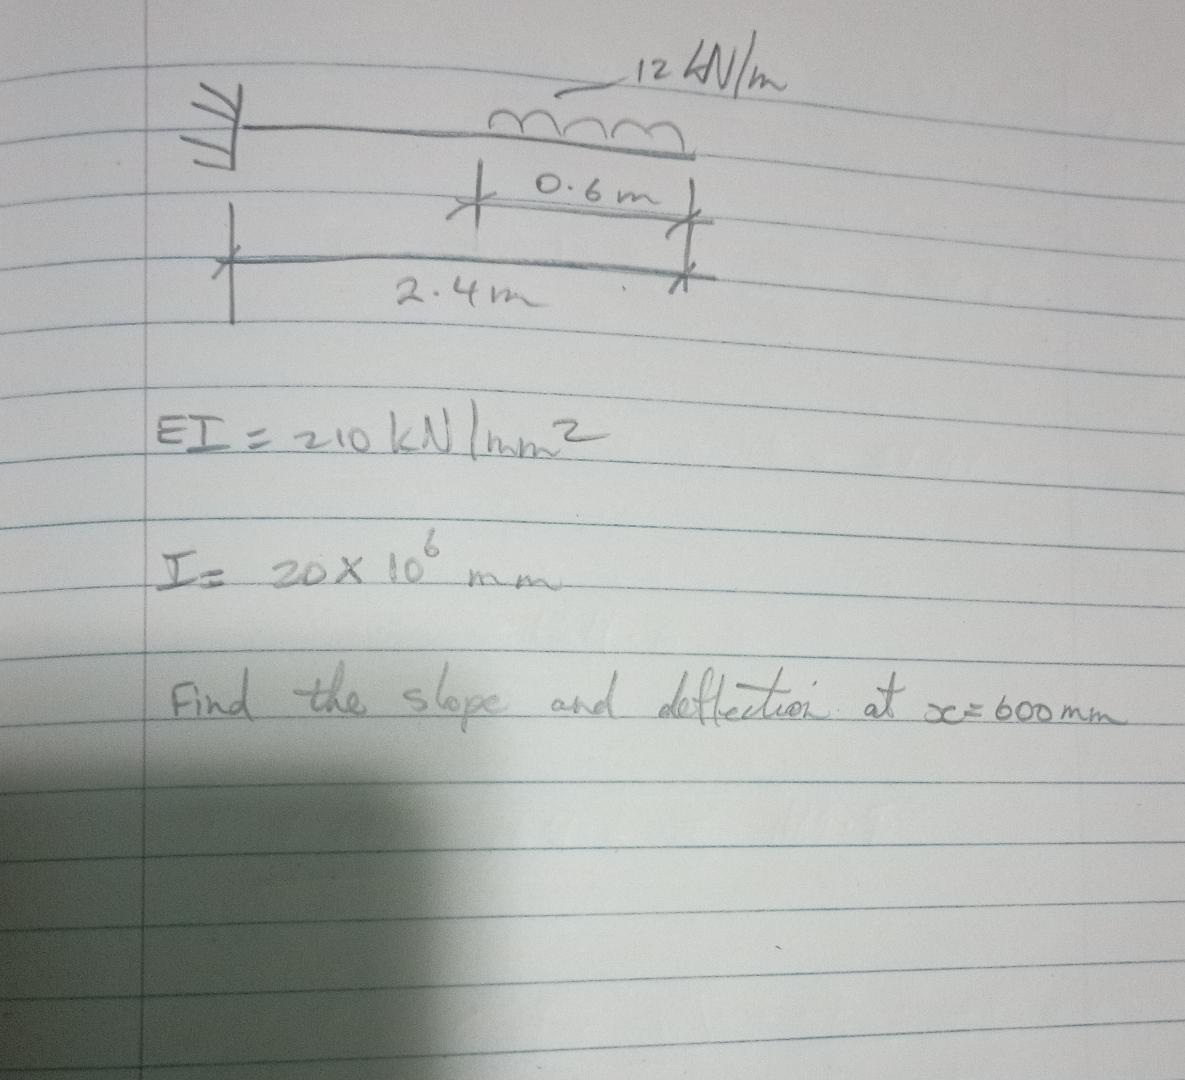 12 kN/m
0.6 m
2.4 m
EI = 210 kN/mm²
I = 20 x 10⁶ mm
Find the slope and deflection at x = 600 mm